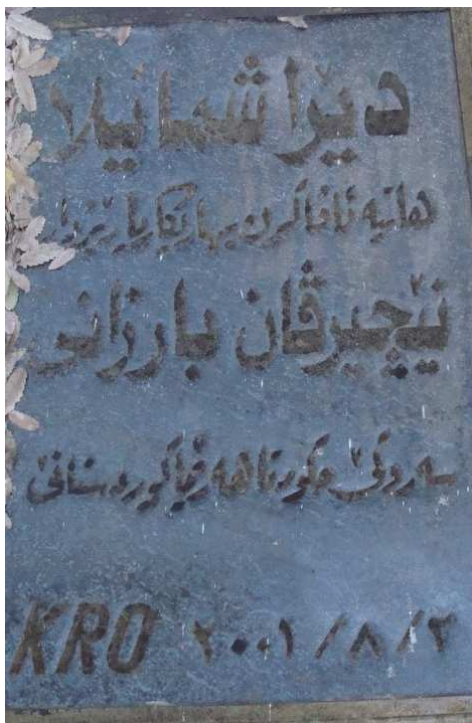 دێرا شمائیلا
هاتیه ئاڤاکرن بهاریکاریا رێزدار
نێچیرڤان بارزانی
سەروکێ حکورتا هەرێما کوردستانێ
KRO ٢٠٠١/٨/٢